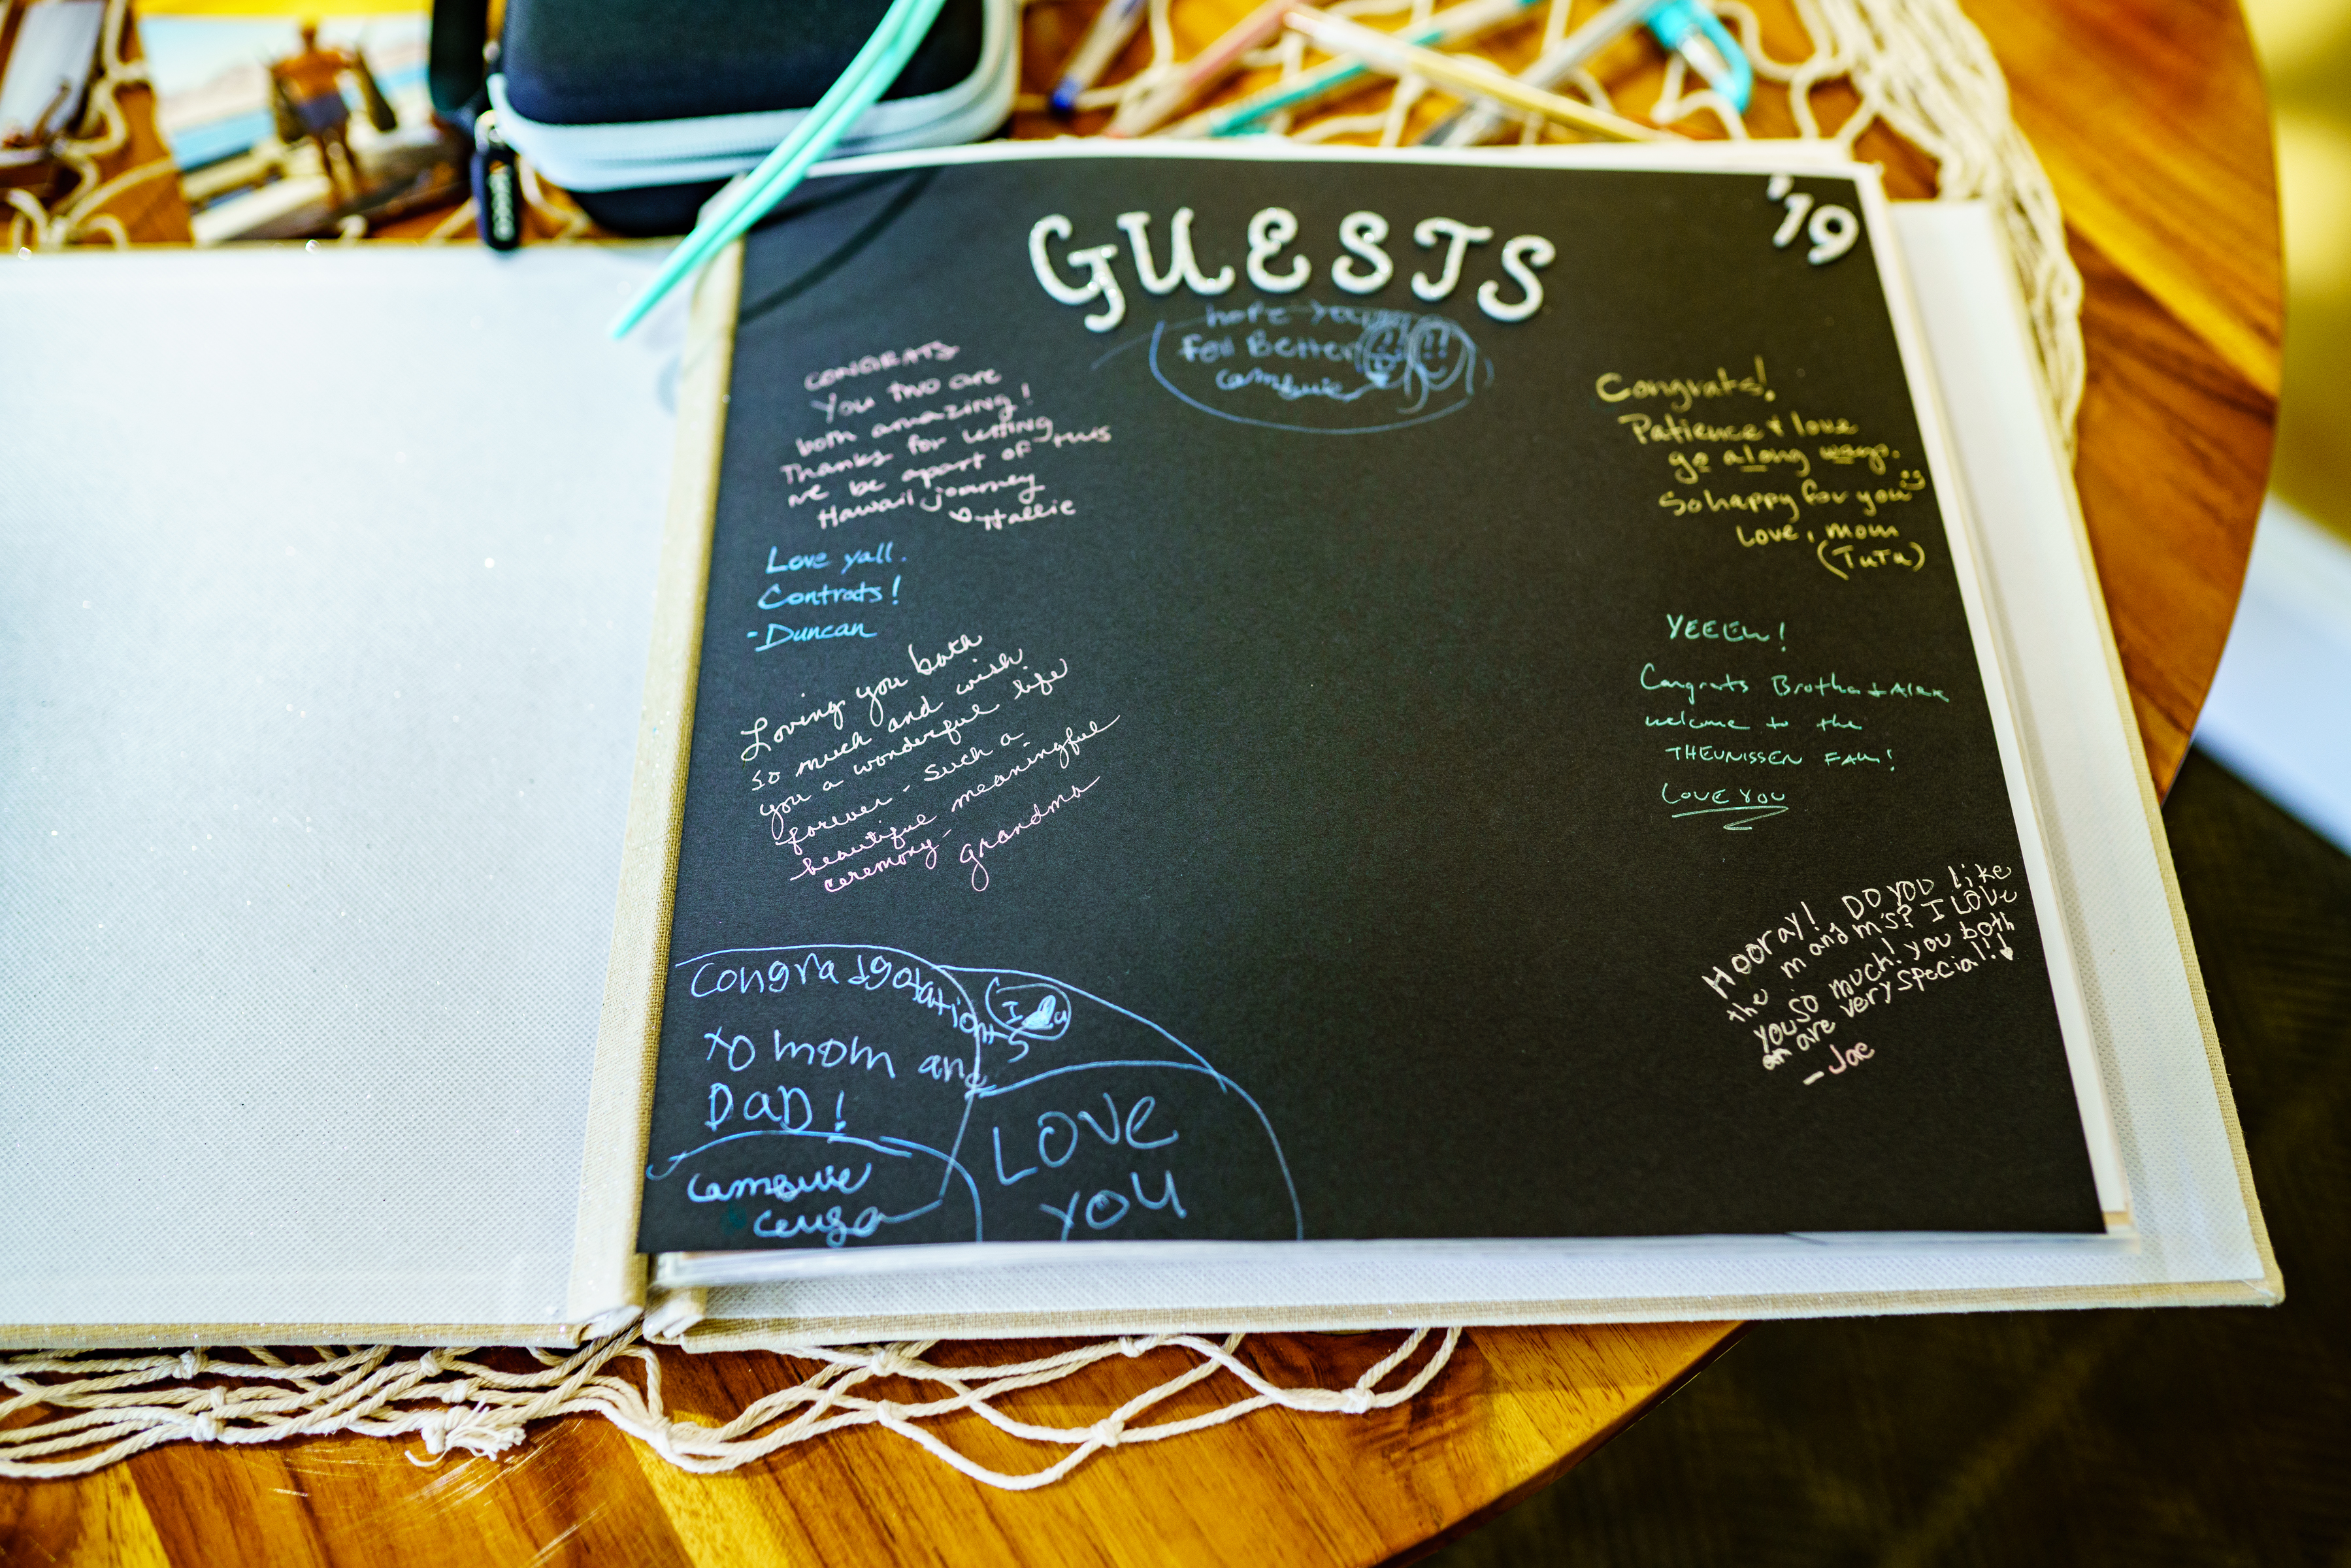 GUESTS
'19
hope you
Fell Better
CONGRATS
You two are
both amazing!
Thanks for letting
me be apart of this
Hawaii journey
Hallie
Love yall.
Contrats!
- Duncan
Loving you both
so much and wish
you a wonderful life
forever - such a
beautiful meaningful
ceremony -
grandma
Congradgatations
to mom and
DaD!
I u
LOVE
YOU
Congrats!
Patience + love
go a long ways.
So happy for you
Love, mom
(TuTu)
YEEEH!
Congrats Brotha + Alex
welcome to the
THEUNISSEN FAM!
LOVE YOU
Hooray! DO YOU like
the m and m's? I LOVe
you so much! you both
are very special!!
- Jae